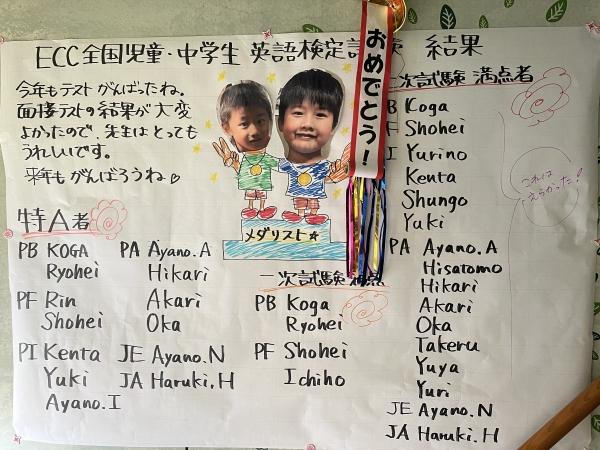 ECC全国児童・中学生 英語検定試験 結果
今年もテストがんばったね。
面接テストの結果が大変
よかったので、先生はとっても
うれしいです。
来年もがんばろうね♡
おめでとう!
メダリスト☆
特A者
PB KOGA
Ryohei
PF Rin
Shohei
PI Kenta
Yuki
Ayano.I
PA Ayano.A
Hikari
Akari
Oka
JE Ayano.N
JA Haruki.H
一次試験 満点
PB Koga
Ryohei
PF Shohei
Ichiho
次試験 満点者
B Koga
F Shohei
I Yurino
Kenta
Shungo
Yuki
PA Ayano.A
Hisatomo
Hikari
Akari
Oka
Takeru
Yuya
Yuri
JE Ayano.N
JA Haruki.H
これは
えらかった!